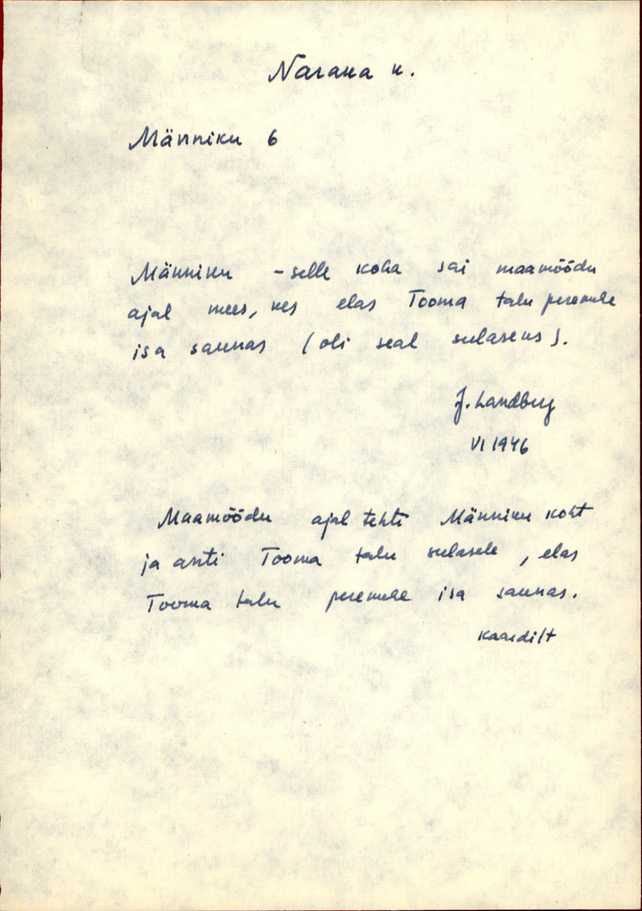 Naraka k.
Männiku 6
Männiku - selle koha sai maamõõdu
ajal mees, kes elas Tooma talu peremehe
isa saunas (oli seal sulaseks).
J. Landberg
VI 1946
Maamõõdu ajal tehti Männiku koht
ja anti Tooma talu sulasele, elas
Tooma talu peremehe isa saunas.
kaardilt